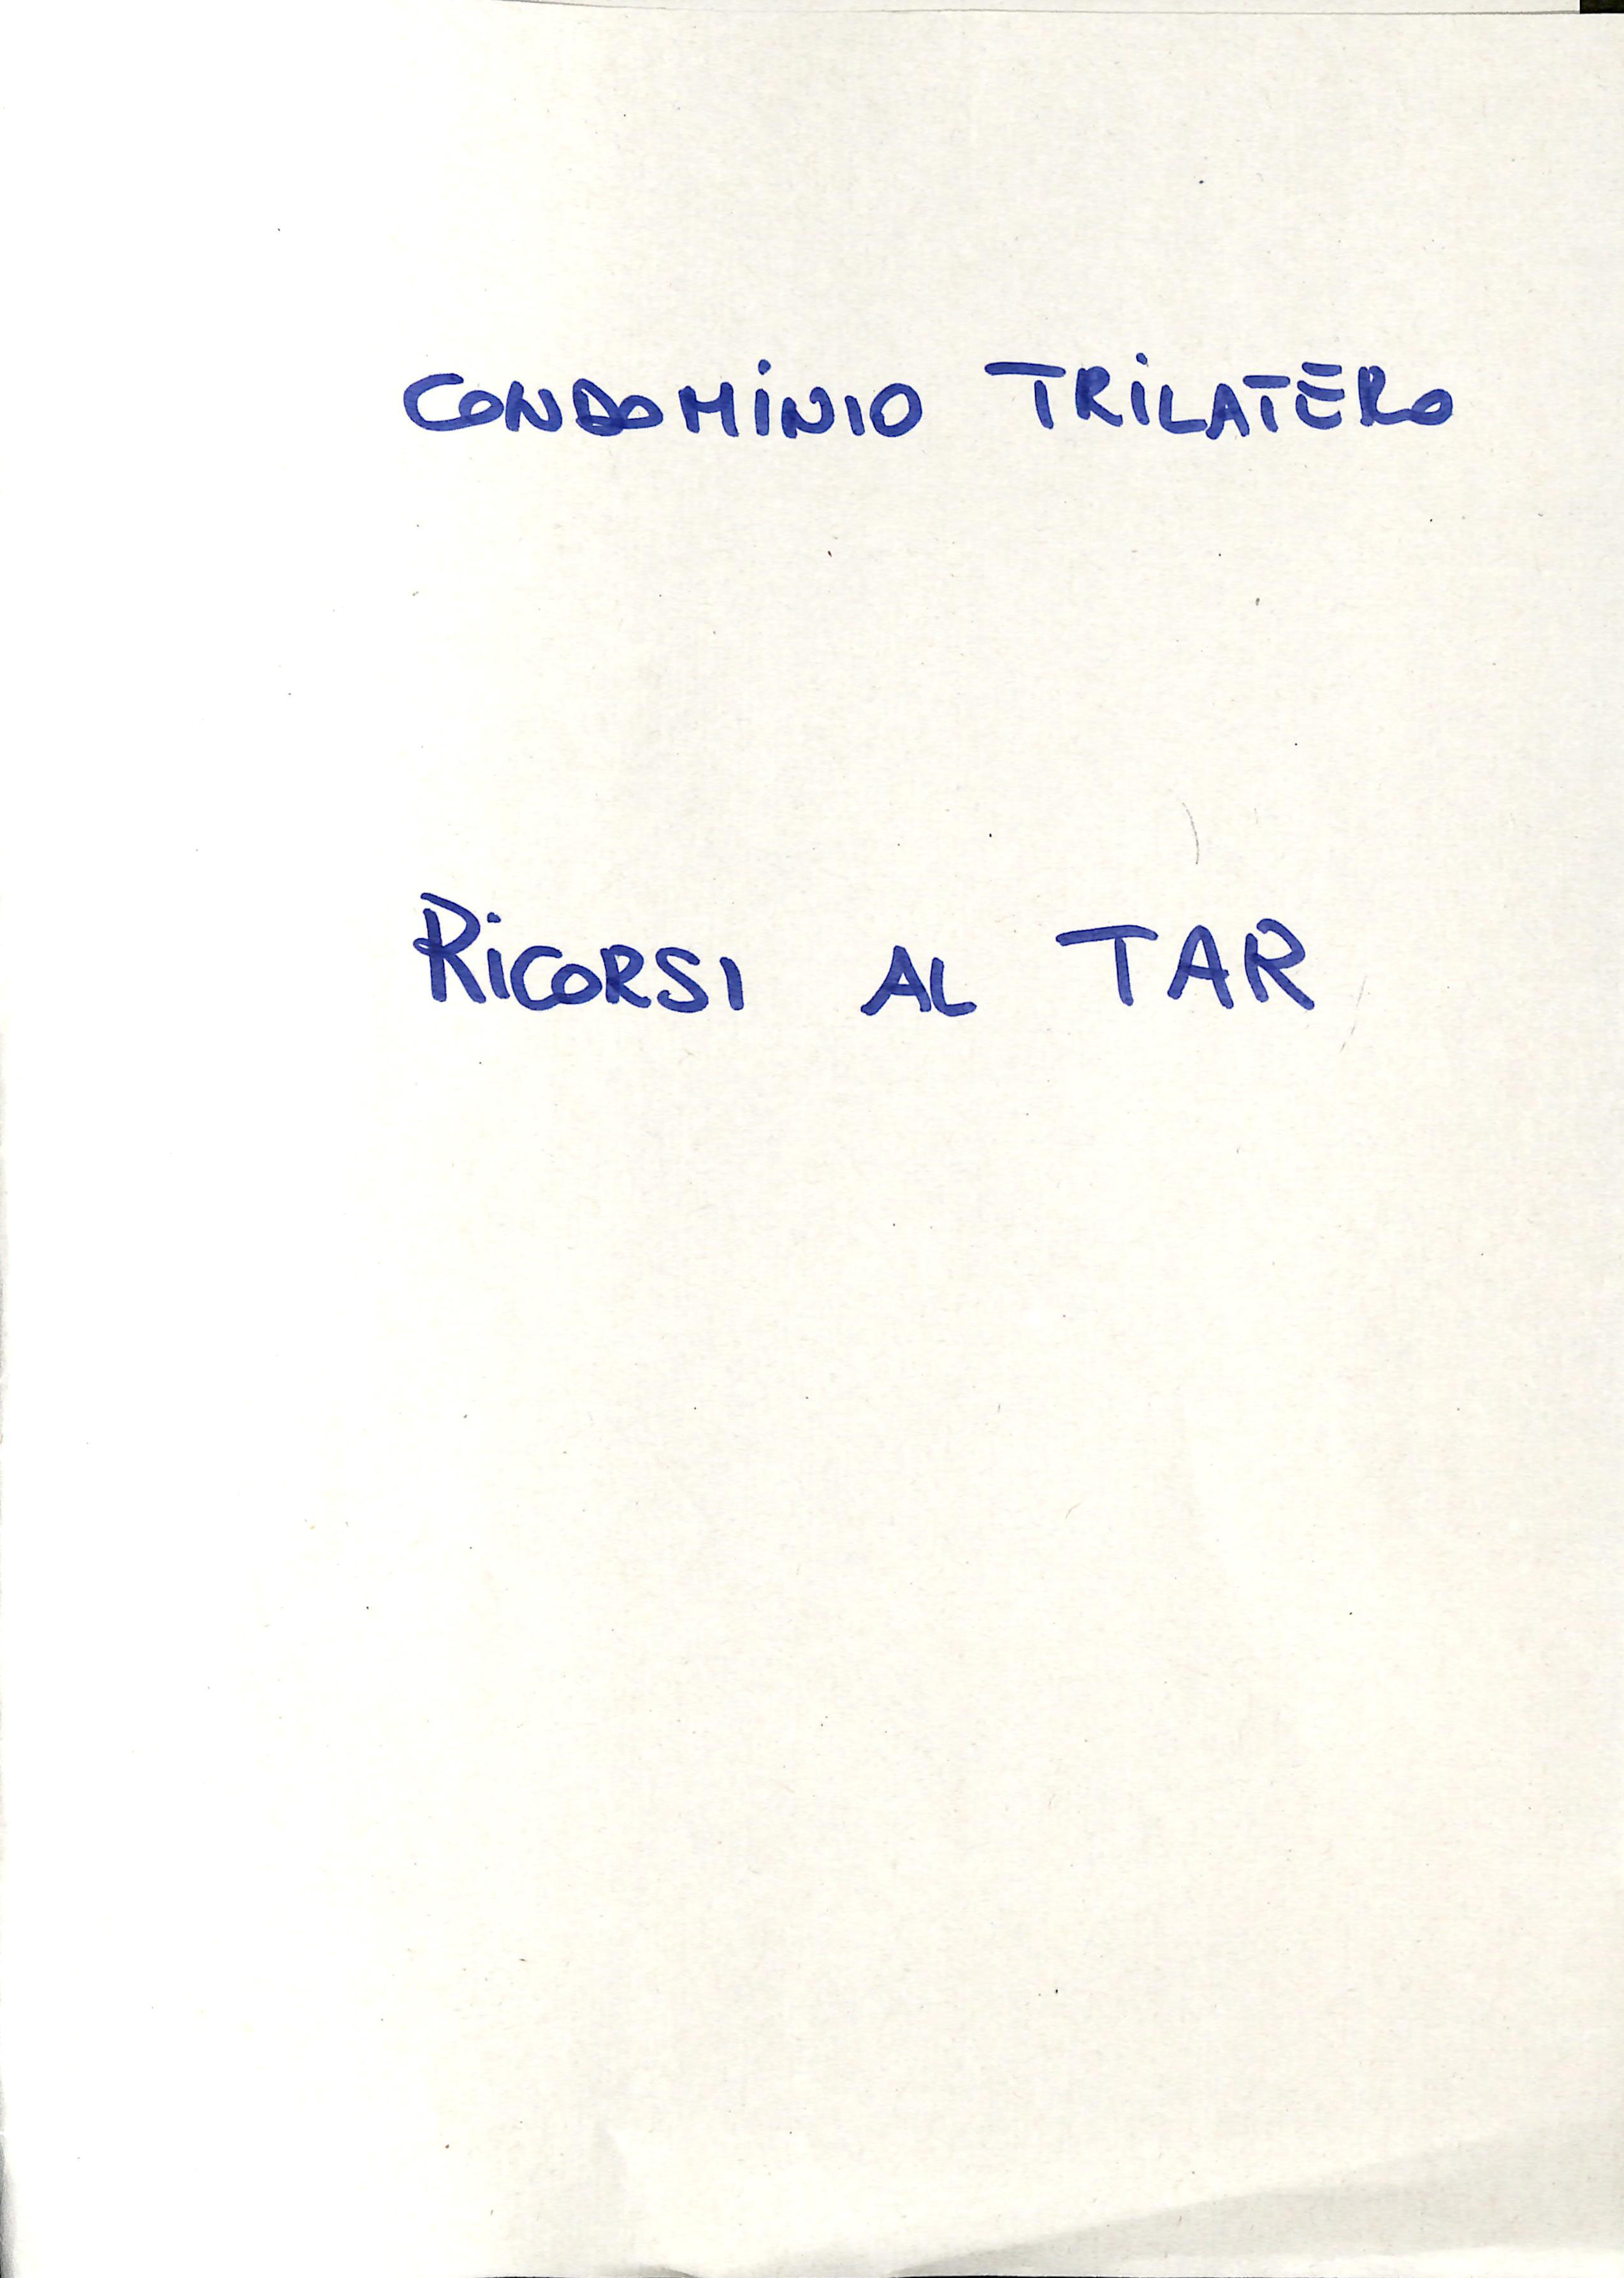 CONDOMINIO TRILATERO
RICORSI AL TAR